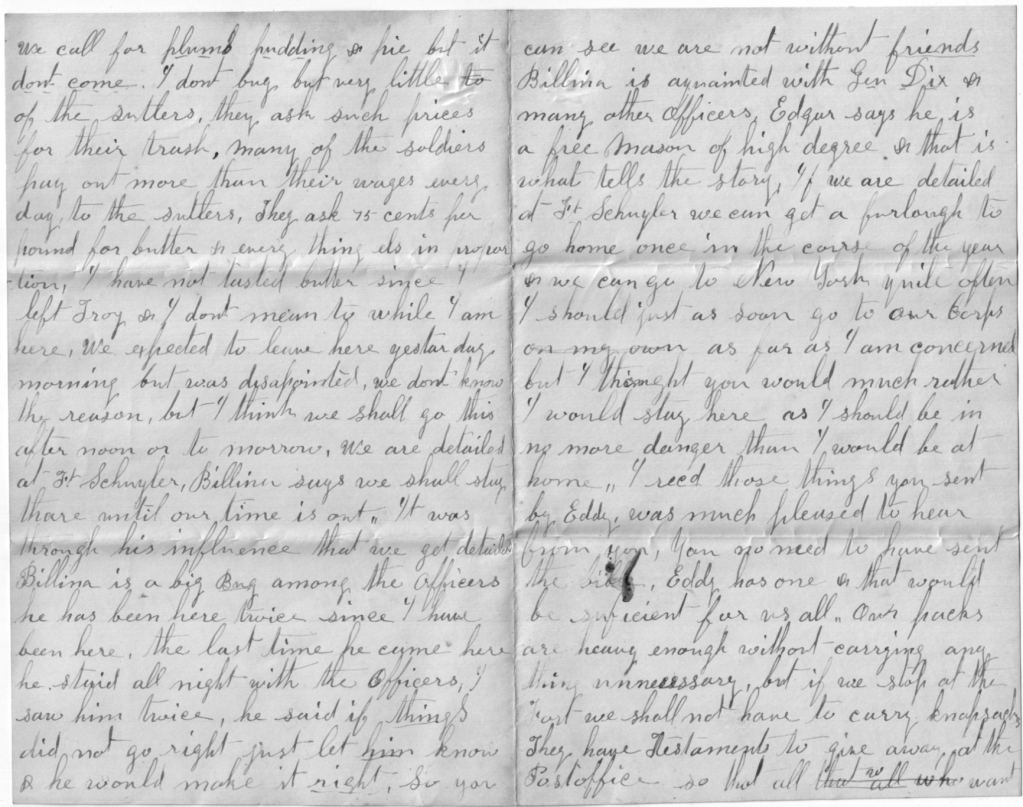 We call for plumb pudding & pie but it
dont come. I dont buy but very little to
of the sutlers, they ask such prices
for their trash, many of the soldiers
pay out more than their wages every
day to the sutlers, They ask 75 cents per
pound for butter & every thing els in propor
-tion, I have not tasted butter since I
left Troy & I dont mean to while I am
here, We expected to leave here yestarday
morning but was disapointed, we dont know
the reason, but I think we shall go this
after noon or to morrow, We are detailed
at Ft Schuyler, Billina says we shall stay
thare until our time is out,, It was
through his influence that we got detailed
Billina is a big Bug among the Officers
he has been here twice since I have
been here, the last time he came here
he staid all night with the Officers, I
saw him twice, he said if things
did not go right just let him know
& he would make it right, So you
can see we are not without friends
Billina is aquainted with Gen Dix &
many other Officers, Edgar says he is
a free Mason of high degree & that is
what tells the story, If we are detailed
at Ft Schuyler we can get a furlough to
go home once in the course of the year
& we can go to New York quite often
I should just as soon go to our Corps
on my own as far as I am concerned
but I thought you would much rather
I would stay here as I should be in
no more danger than I would be at
home,, I recd those things you sent
by Eddy, was much pleased to hear
from you, You no need to have sent
the, Eddy has one & that would
be suficient for us all,, Our packs
are heavy enough without carrying any
thing unnecessary, but if we stop at the
Fort we shall not have to carry knapsacks
They have Testaments to give away at the
Postoffice so that all that all who want